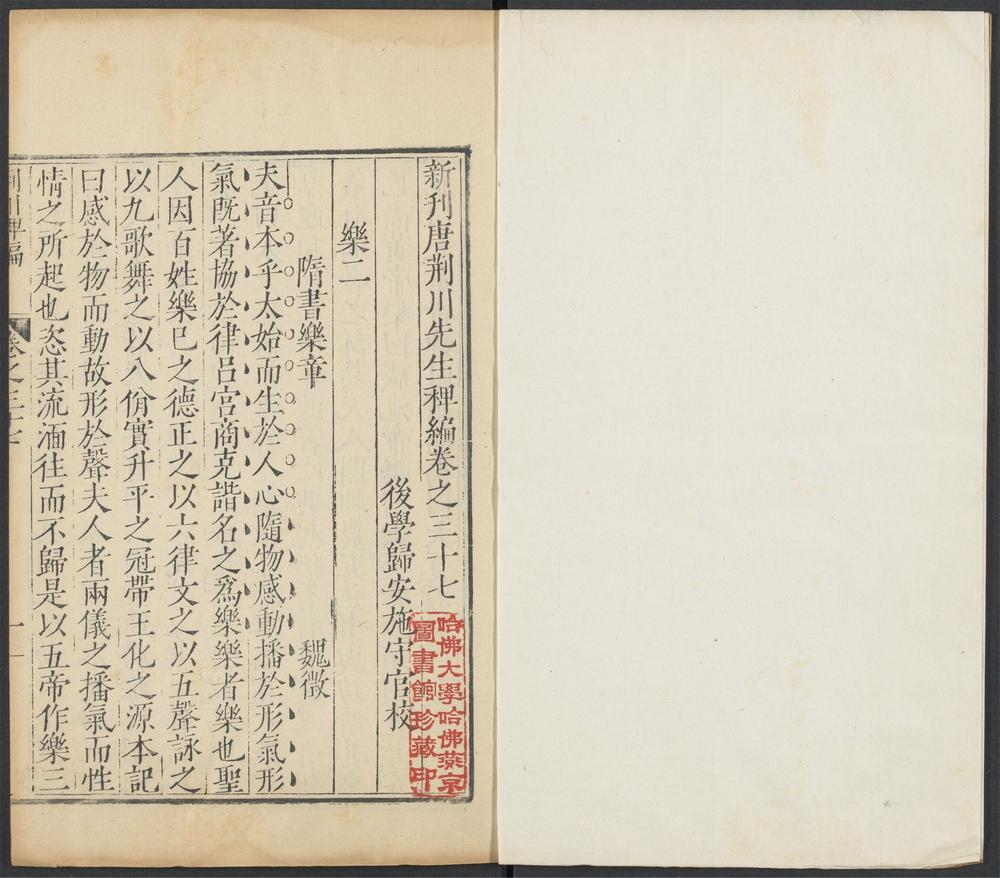 新刊唐荊川先生稗編卷之三十七
後學歸安施守官校
樂二
隋書樂章
魏徵
夫音本乎太始而生於人心隨物感動播於形氣形
氣旣著協於律呂宮商克諧名之爲樂樂者樂也聖
人因百姓樂巳之德正之以六律文之以五聲詠之
以九歌舞之以八佾實升平之冠帶王化之源本記
曰感於物而動故形於聲夫人者兩儀之播氣而性
情之所起也恣其流湎往而不歸是以五帝作樂三
荆川稗編
卷之三十七
一
哈佛大學哈佛燕京
圖書館珍藏印